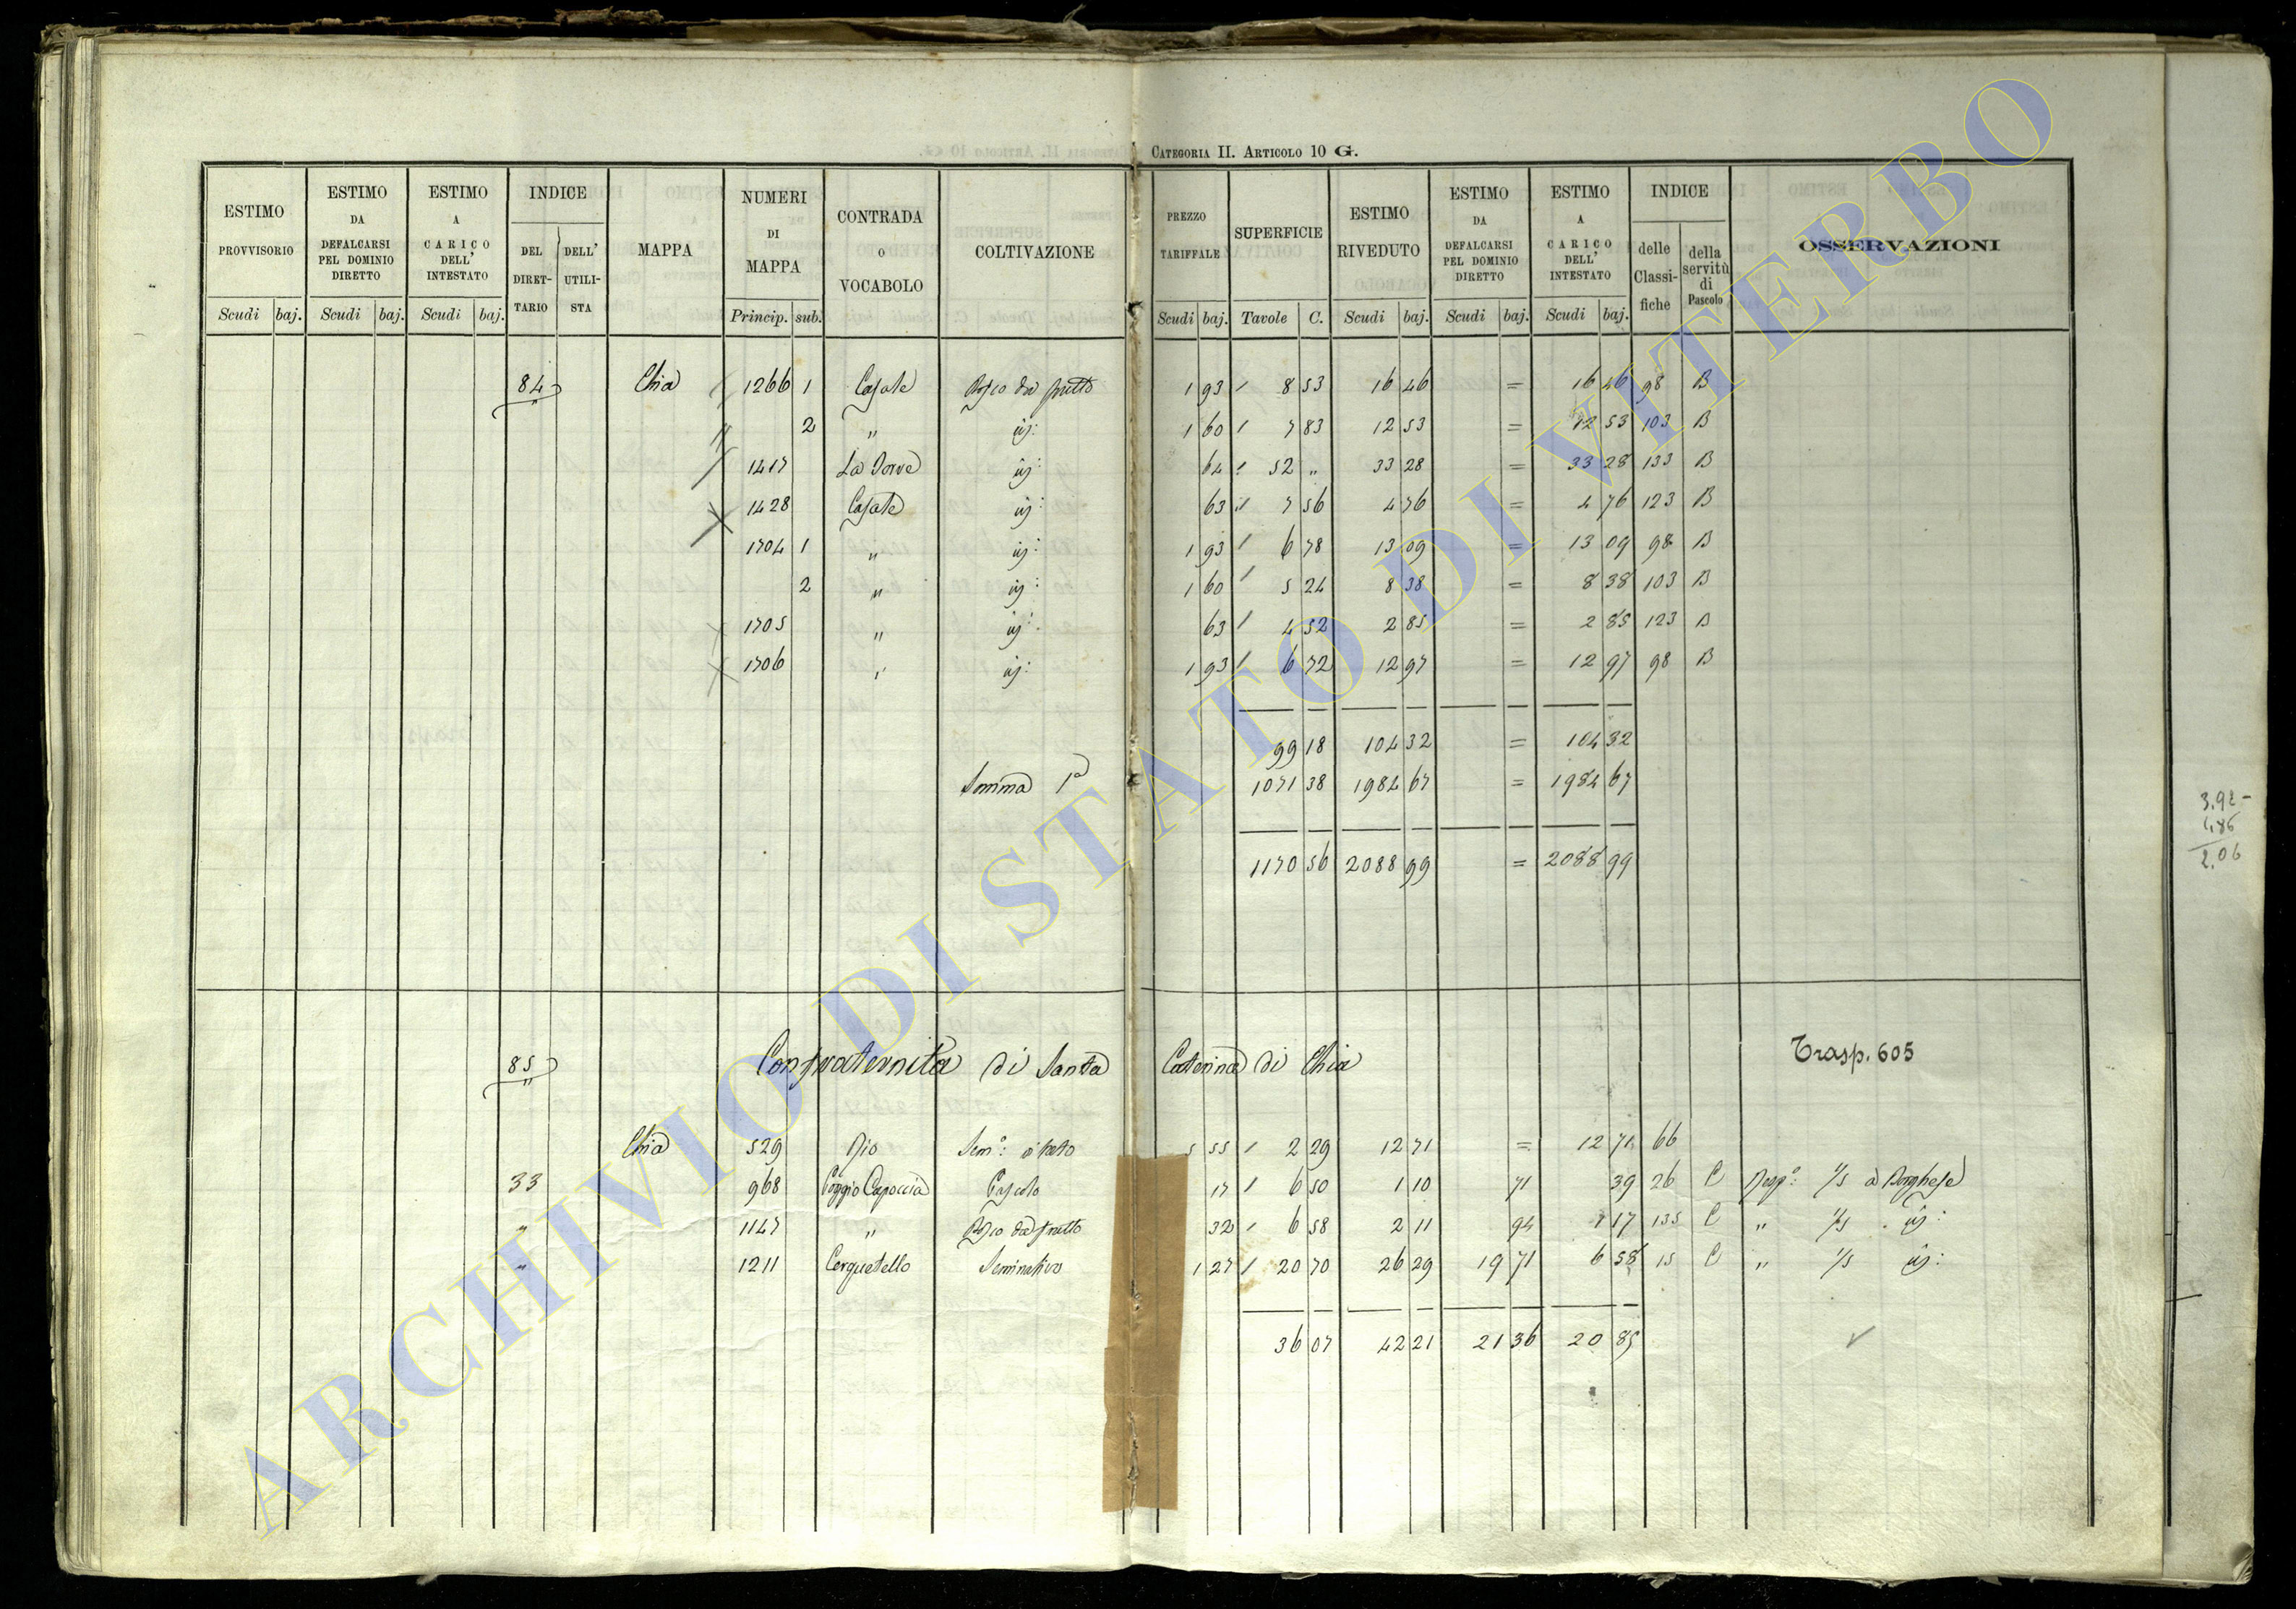 CATEGORIA II. ARTICOLO 10 G.
ESTIMO PROVVISORIO | ESTIMO DA DEFALCARSI PEL DOMINIO DIRETTO | ESTIMO A CARICO DELL' INTESTATO | INDICE | MAPPA | NUMERI DI MAPPA | CONTRADA o VOCABOLO | COLTIVAZIONE | PREZZO TARIFFALE | SUPERFICIE | ESTIMO RIVEDUTO | ESTIMO DA DEFALCARSI PEL DOMINIO DIRETTO | ESTIMO A CARICO DELL' INTESTATO | INDICE | OSSERVAZIONI
DEL DIRET-TARIO | DELL' UTILI-STA | delle Classi-fiche | della servitù di Pascolo
Scudi | baj. | Scudi | baj. | Scudi | baj. | Princip. | sub. | Scudi | baj. | Tavole | C. | Scudi | baj. | Scudi | baj. | Scudi | baj.
84 Chia 1266 1 Casale Bosco da frutto 1 93 8 53 16 46 = 16 46 98 B
2 " id: 1 60 7 83 12 53 = 12 53 103 B
1417 La id: 64 52 " 33 28 = 33 28 133 B
1428 Casale id: 63 7 56 4 76 = 4 76 123 B
1704 1 " id: 1 93 6 78 13 09 = 13 09 98 B
2 " id: 1 60 5 24 8 38 = 8 38 103 B
1705 " id: 63 4 52 2 85 = 2 85 123 B
1706 " id: 1 93 6 72 12 97 = 12 97 98 B
99 18 104 32 = 104 32
Somma 1a 1071 38 1984 67 = 1984 67
1170 56 2088 99 = 2088 99
3.92 -
1,86
2.06
85 Confraternita di Santa Caterina di Chia Trasp. 605
Chia 529 Rio Sem.o: 5 55 2 29 12 71 = 12 71 66
33 968 Poggio Capoccia Pascolo 17 6 50 1 10 71 39 26 C Risp.a: 1/5 a Borghese
" 1147 " Bosco da frutto 32 6 58 2 11 94 1 17 135 C " 1/5 id:
" 1211 Cerquetello Seminativo 1 27 20 70 26 29 19 71 6 58 15 C " 1/5 id:
36 07 42 21 21 36 20 85
ARCHIVIO DI STATO DI VITERBO